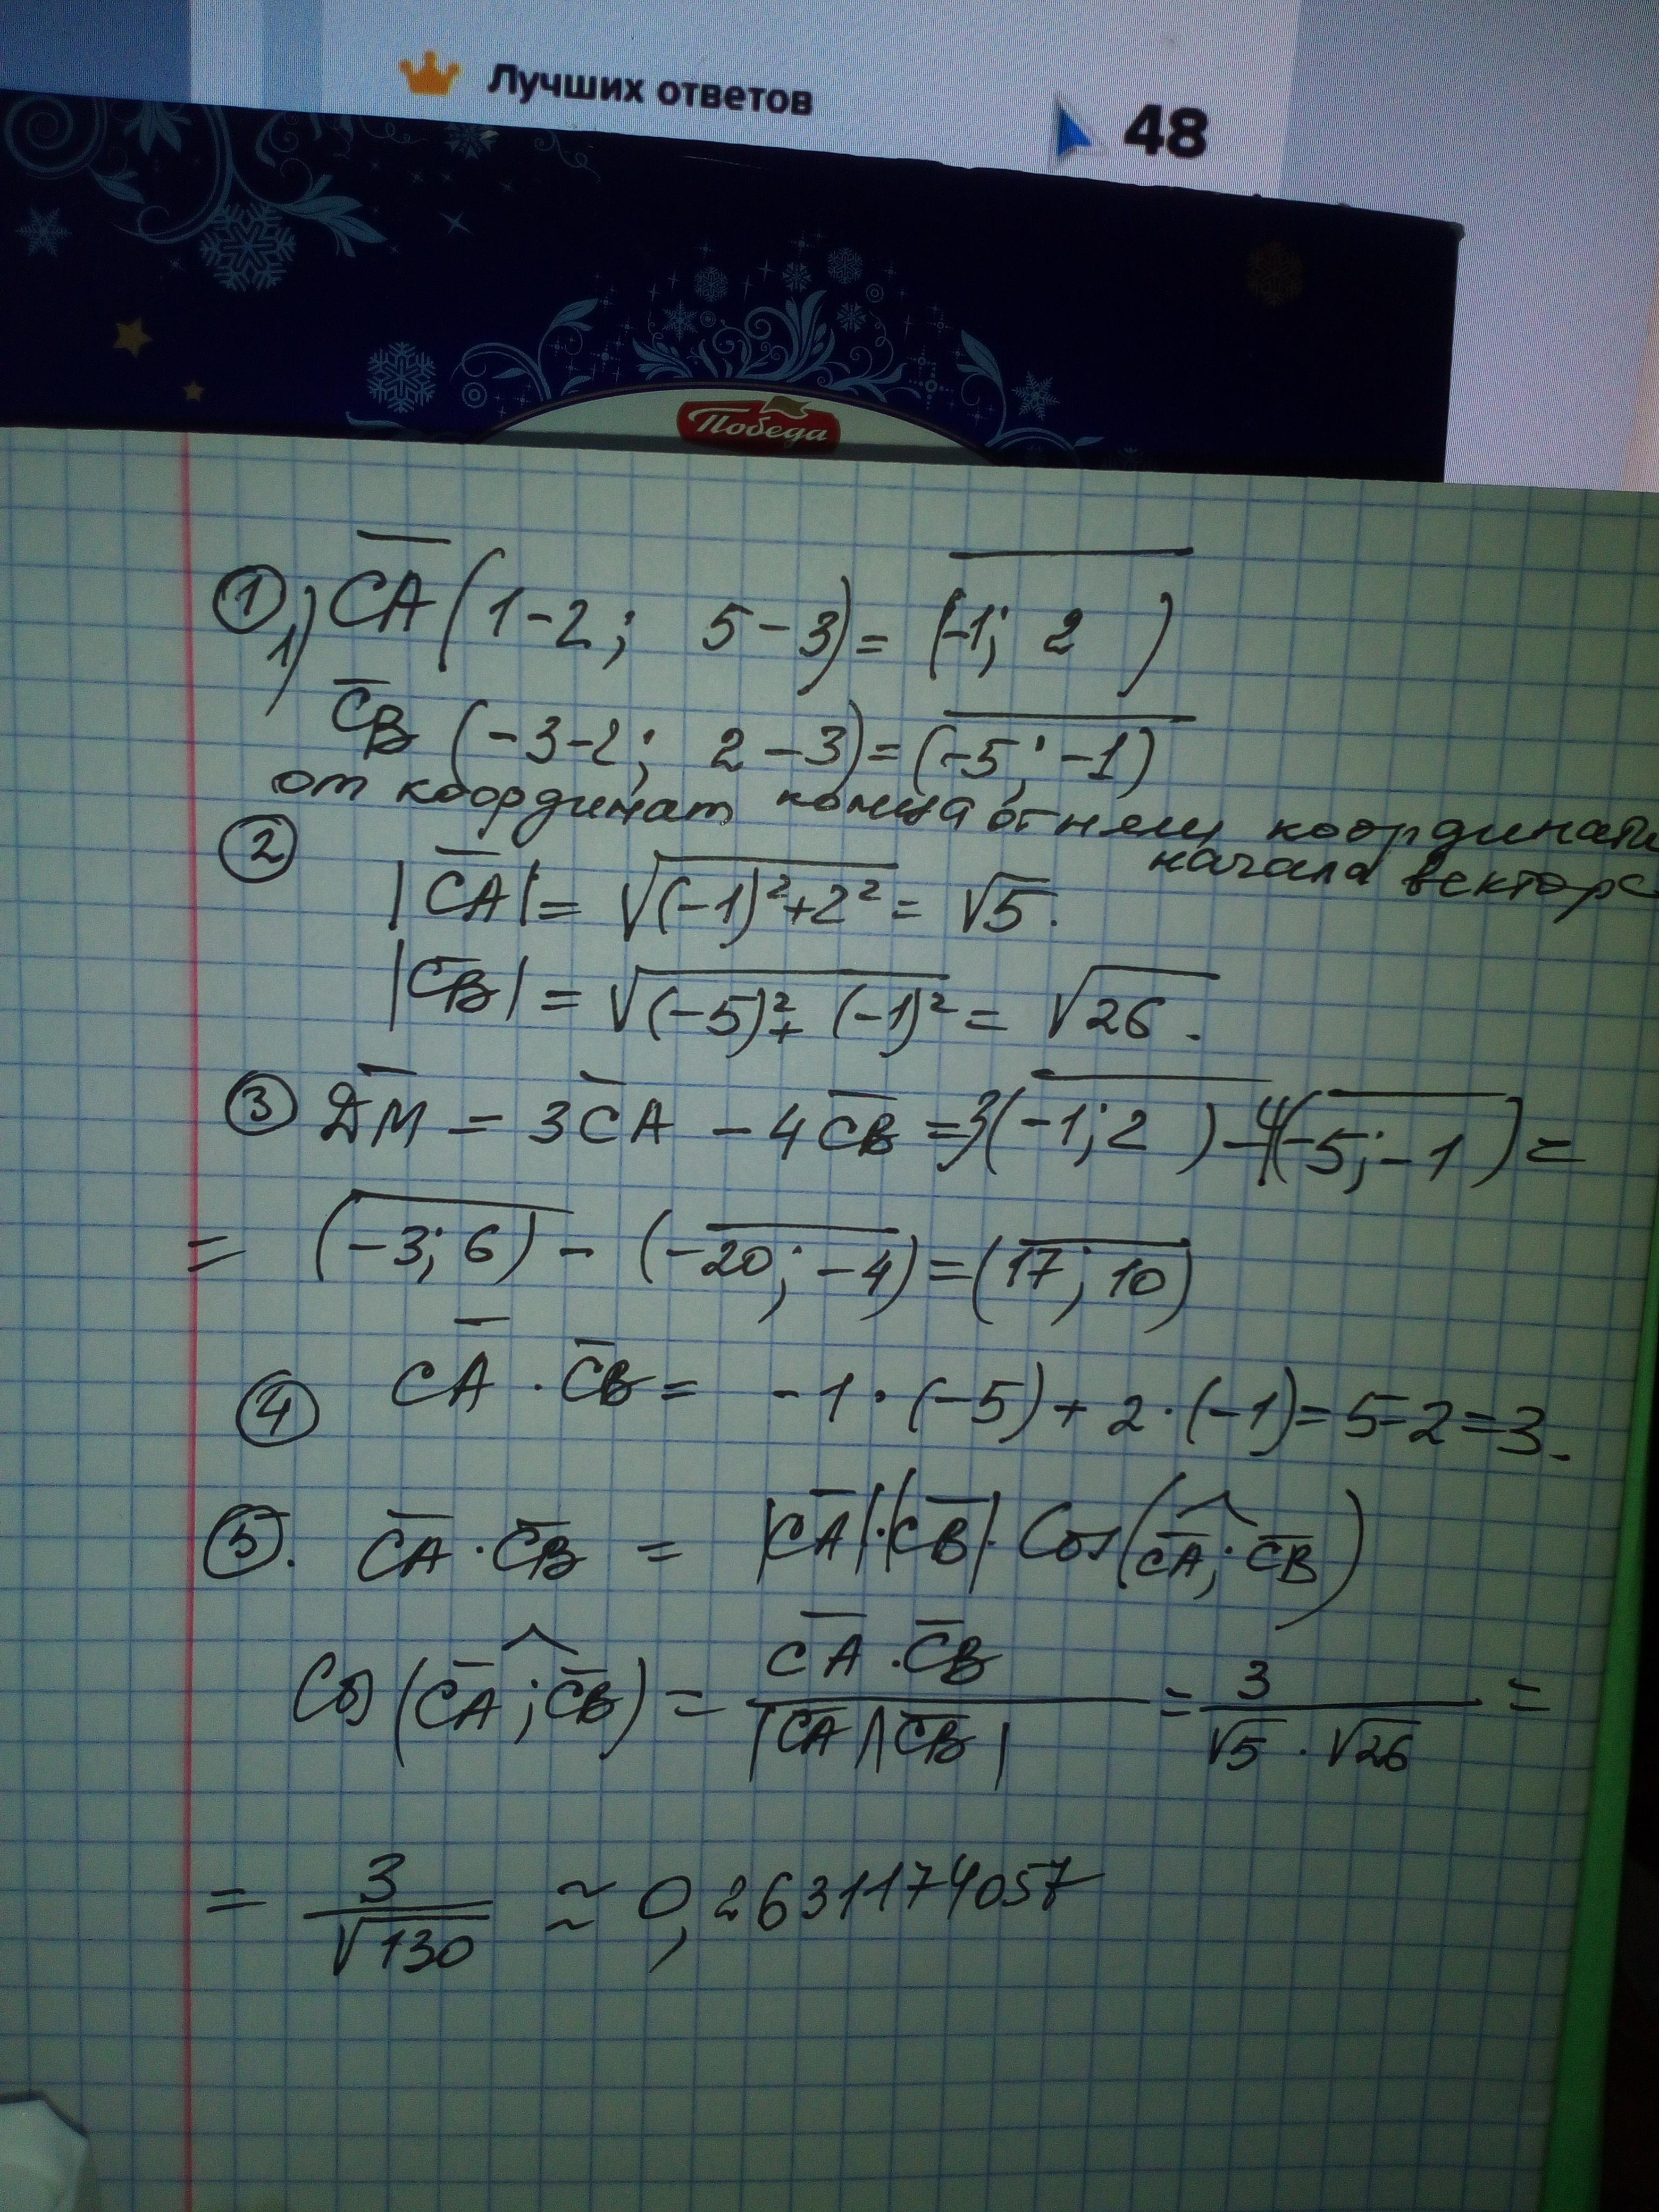 Лучших ответов 48
Победа
① 1) CA (1-2; 5-3) = (-1; 2)
CB (-3-2; 2-3) = (-5; -1)
от координат конца отнял координаты
начала вектора
② |CA| = √((-1)²+2²) = √5.
|CB| = √((-5)²+(-1)²) = √26.
③ ДМ = 3CA - 4CB = 3(-1; 2) - 4(-5; -1) =
= (-3; 6) - (-20; -4) = (17; 10)
④ CA · CB = -1·(-5) + 2·(-1) = 5-2 = 3.
⑤. CA · CB = |CA|·|CB|· Cos(CA; CB)
Cos(CA; CB) = CA · CB / |CA||CB| = 3 / √5 · √26 =
= 3 / √130 ≈ 0,2631174057